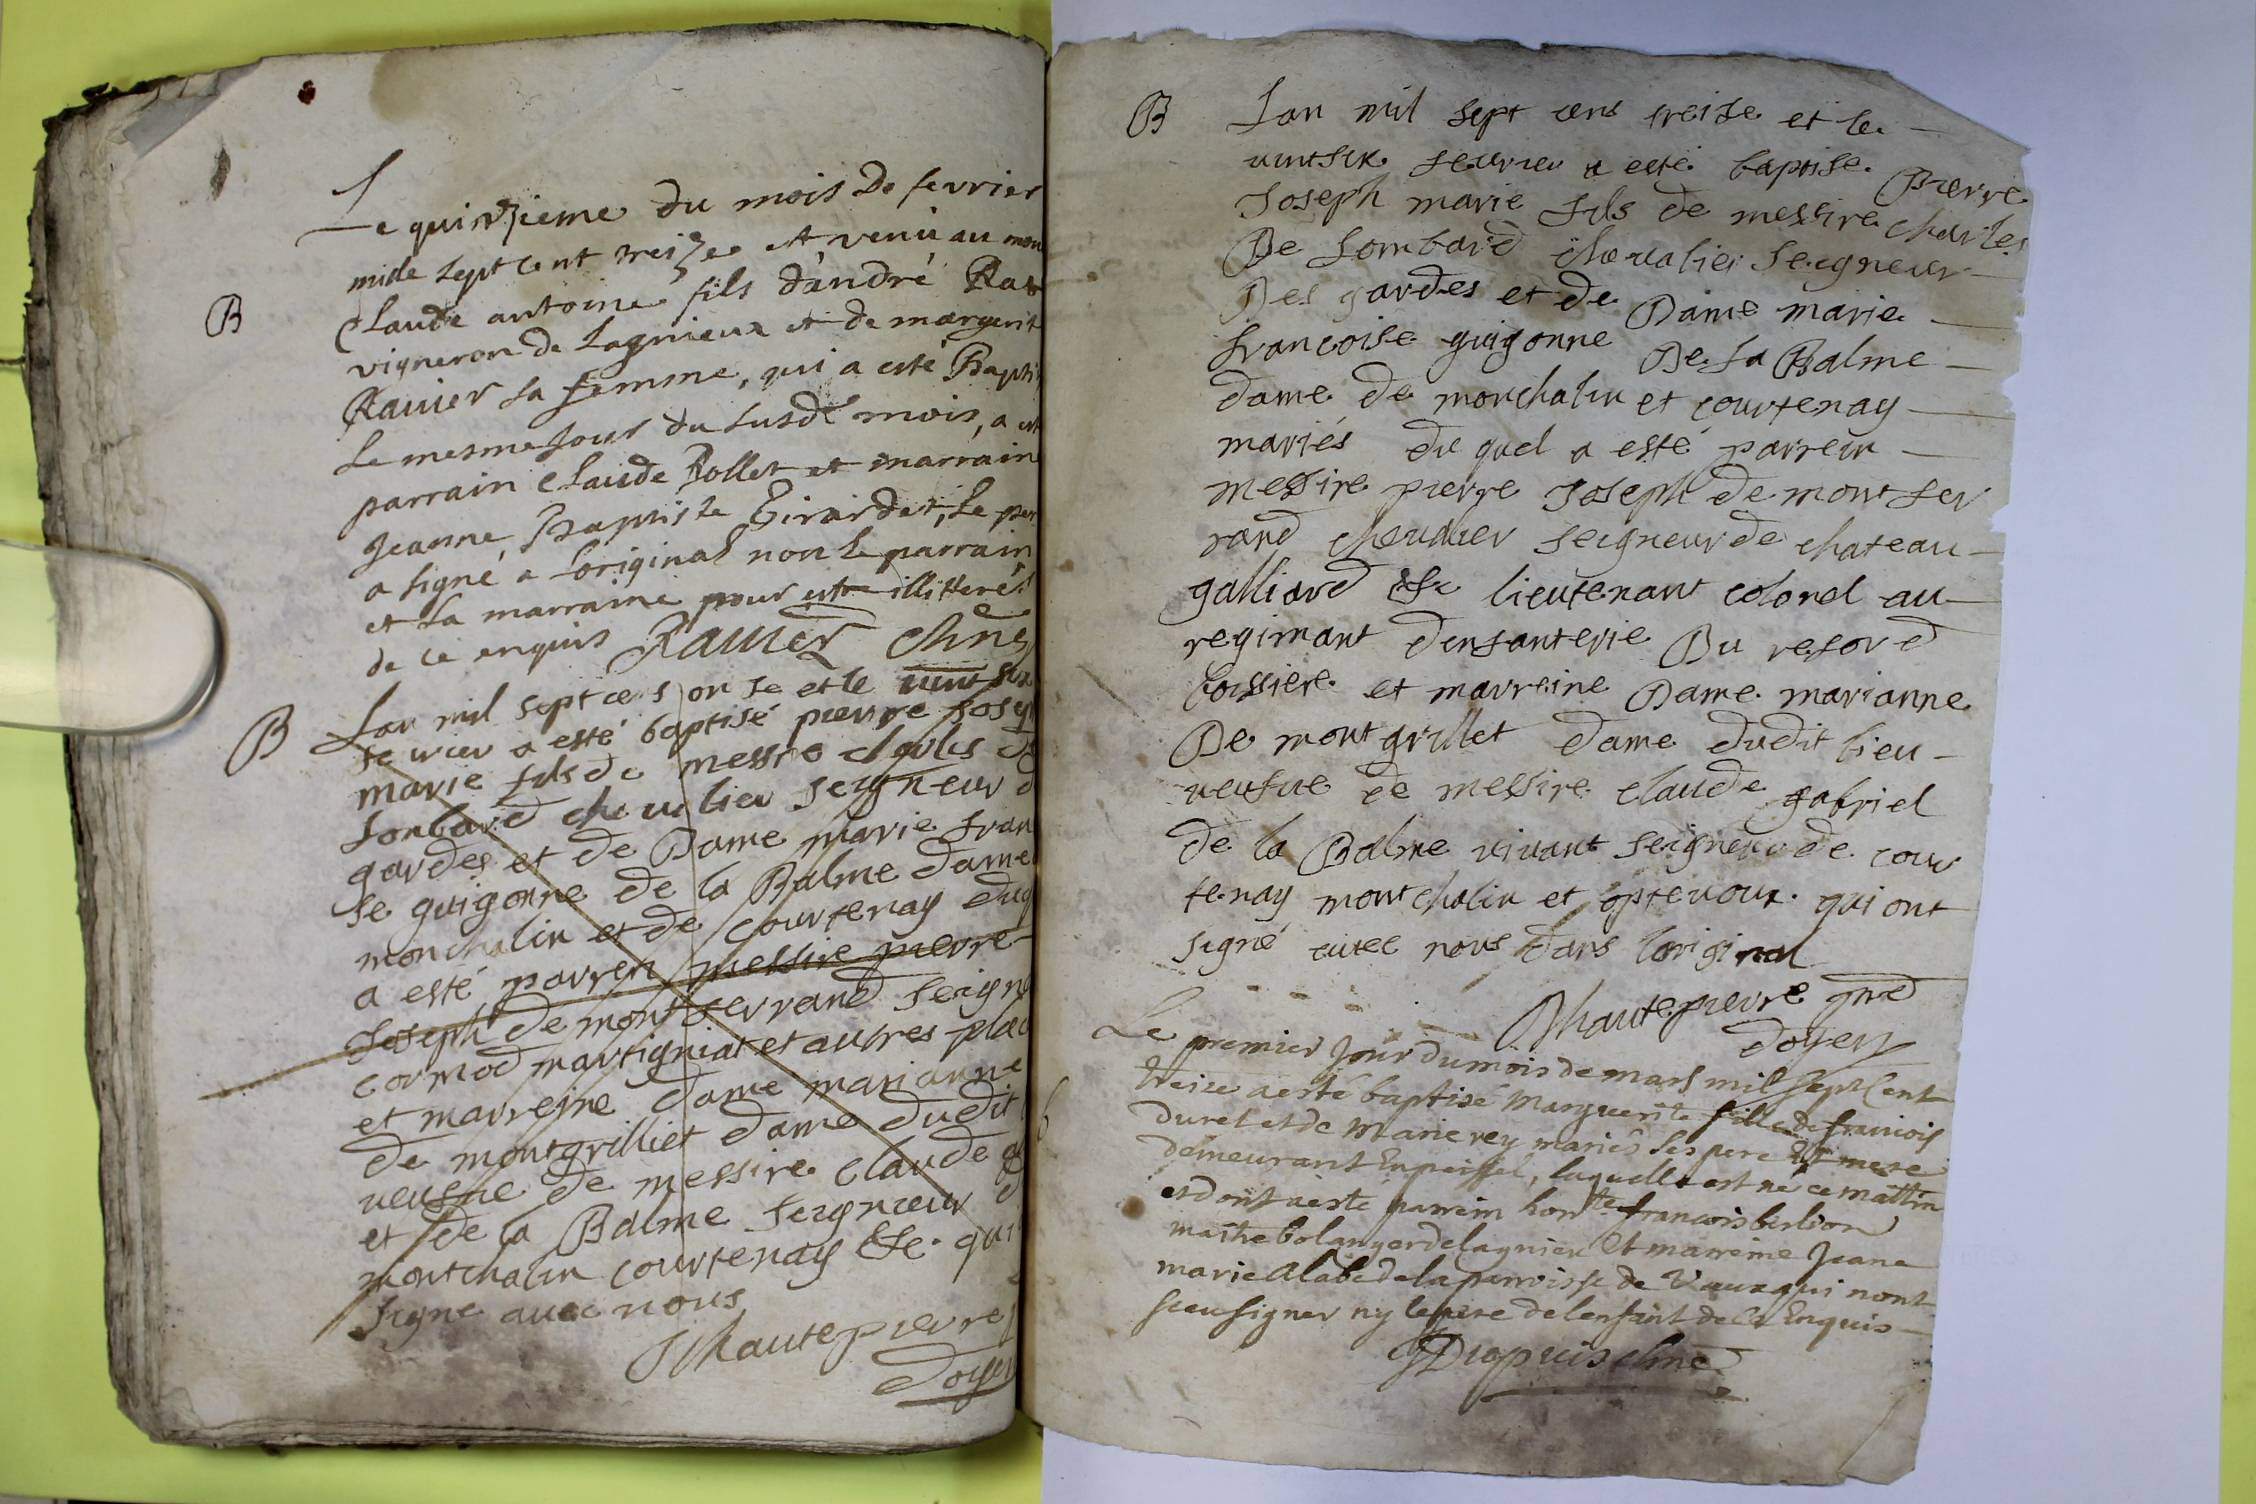 Le quinzieme du mois de fevrier
mille sept cent treize est venu au mon
B
Claude antoine fils d'andré Rav
vigneron de Lagnieux et de margerit
Ravier sa femme, qui a esté Bapti
Le mesme jour du susdt mois, a est
parrain Claude Rollet et marraine
Jeanne Baptiste Girardet, Le per
a signé a Loriginal non le parrain
et La marraine pour estre illitterés
de ce enquis Ravier
B
Lan mil sept cens onse et le vint six
feuvrier a esté baptisé pierre Josep
marie fils de messre charles de
Lombard chevalier seigneur d
gardes et de Dame marie fran
se guigonne de la Balme dame
monchalin et de courtenay duq
a esté parren messire pierre
Joseph de montferrand seigne
cormod martigniat et autres place
et marreine dame marianne
de montgrilliet dame dudit
veufue de messire claude g
et de la Balme seigneur d
montchalin courtenay &c. qui
signe avec nous
Jhautepierre
doyen
B
Lan mil sept cens treise et le
vintsix feuvrier a esté baptise Pierre
Joseph marie fils de messire charles
De Lombard chevalier seigneur
Des gardes et de Dame marie
francoise guigonne De La Balme
dame de monchalin et courtenay
mariés du quel a esté parrein
messire pierre Joseph de montfer
rand chevalier seigneur de chateau
galliard &c lieutenant colonel au
regimant d'enfanterie Du
boissiere et marreine Dame marianne
De montgrillet dame dudit lieu
veufue de messire claude gabriel
de la Balme vivant seigneur de cour
tenay montchalin et optevoux. qui ont
signé avec nous dans loriginal
Jhautepierre
doyen
b
Le premier jour du mois de mars mil sept Cent
treize a esté baptisé Marguerite fille de francois
duret et de Marie rey mariés ses pere et mere
demeurant En peissel, laquelle est né ce mattin
et dont a este parrein honte francois berlion
maitre bolanger de lagnieu et marreine Jeane
marie alabe de la parroisse de Vaux qui nont
sceu signer ny le pere de lenfant de ce Enquis
Dupuis